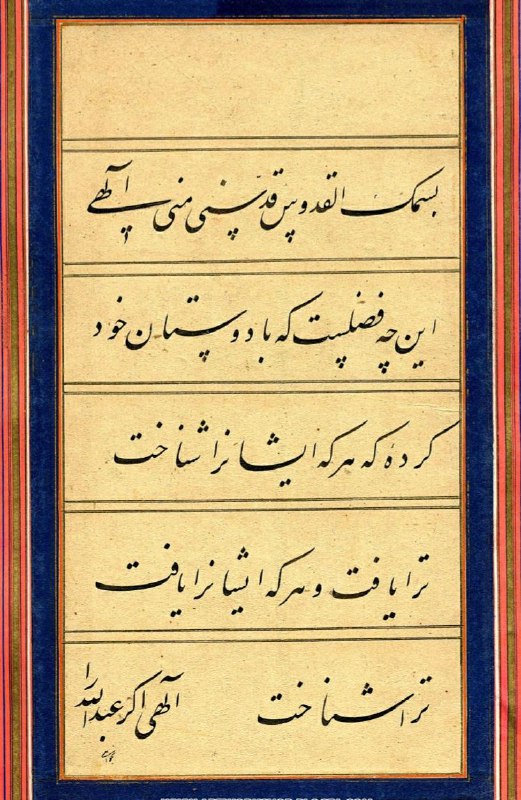 بسمک القدوس قدسنی منی الهی
این چه فضلیست که با دوستان خود
کرده که هر که ایشانرا شناخت
ترا یافت و هر که ایشانرا یافت
ترا شناخت الهی اگر عبدالله را